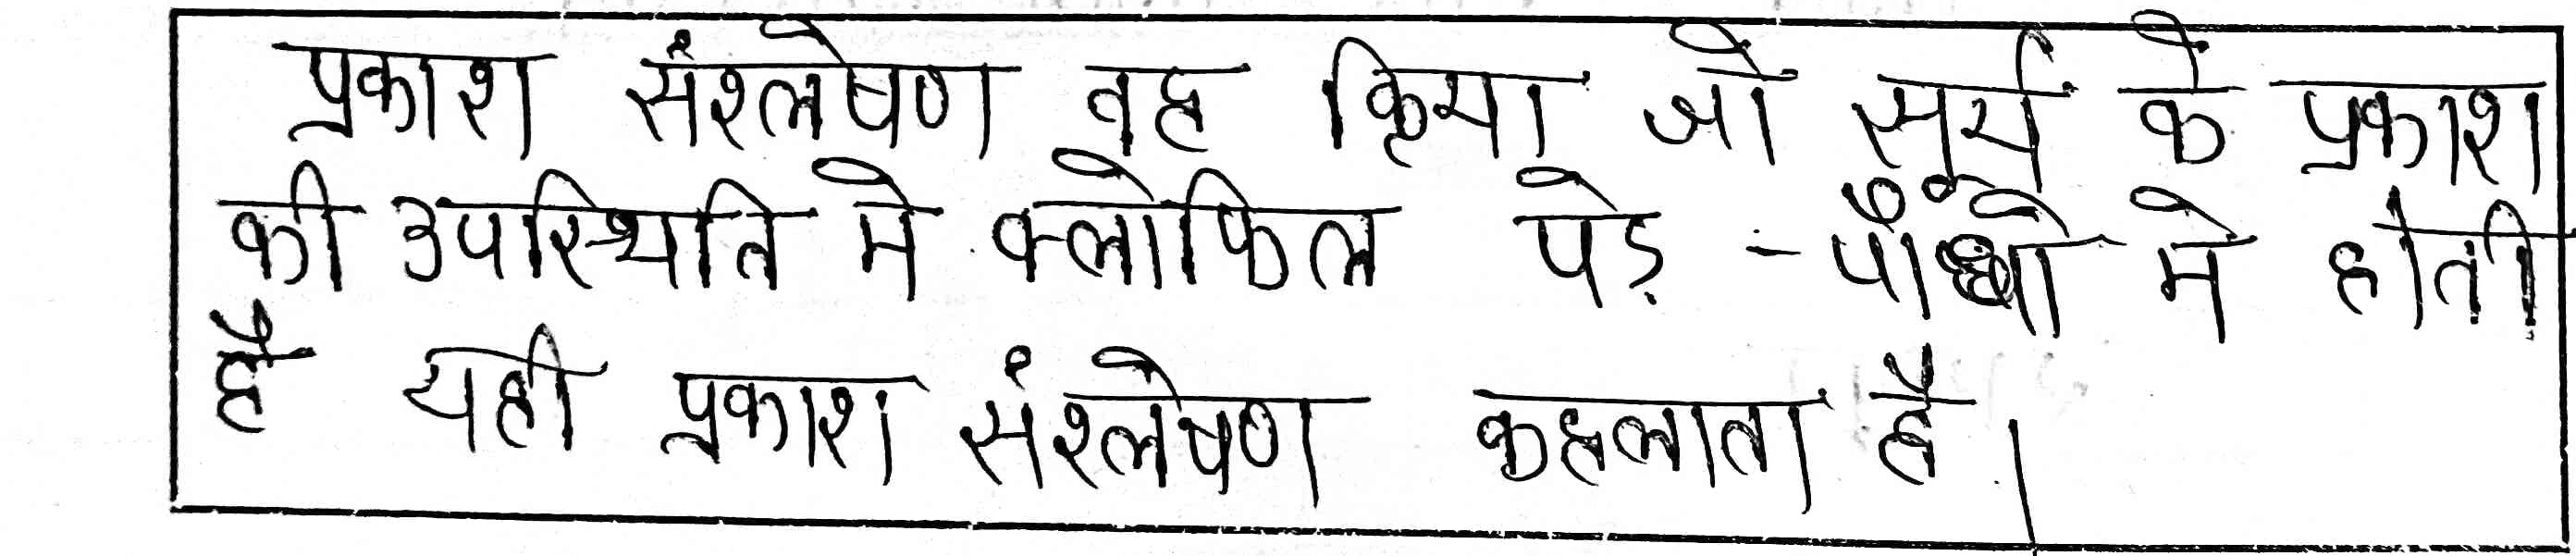 प्रकाश संश्लेषण वह क्रिया जो सूर्य के प्रकाश
की उपस्थिति मे क्लोफिल पेड़ - पौधो मे होती
है यही प्रकाश संश्लेषण कहलाता है।